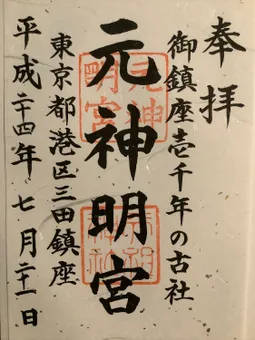 奉拝
御鎮座壱千年の古社
元神明宮
東京都港区三田鎮座
平成二十四年七月二十一日